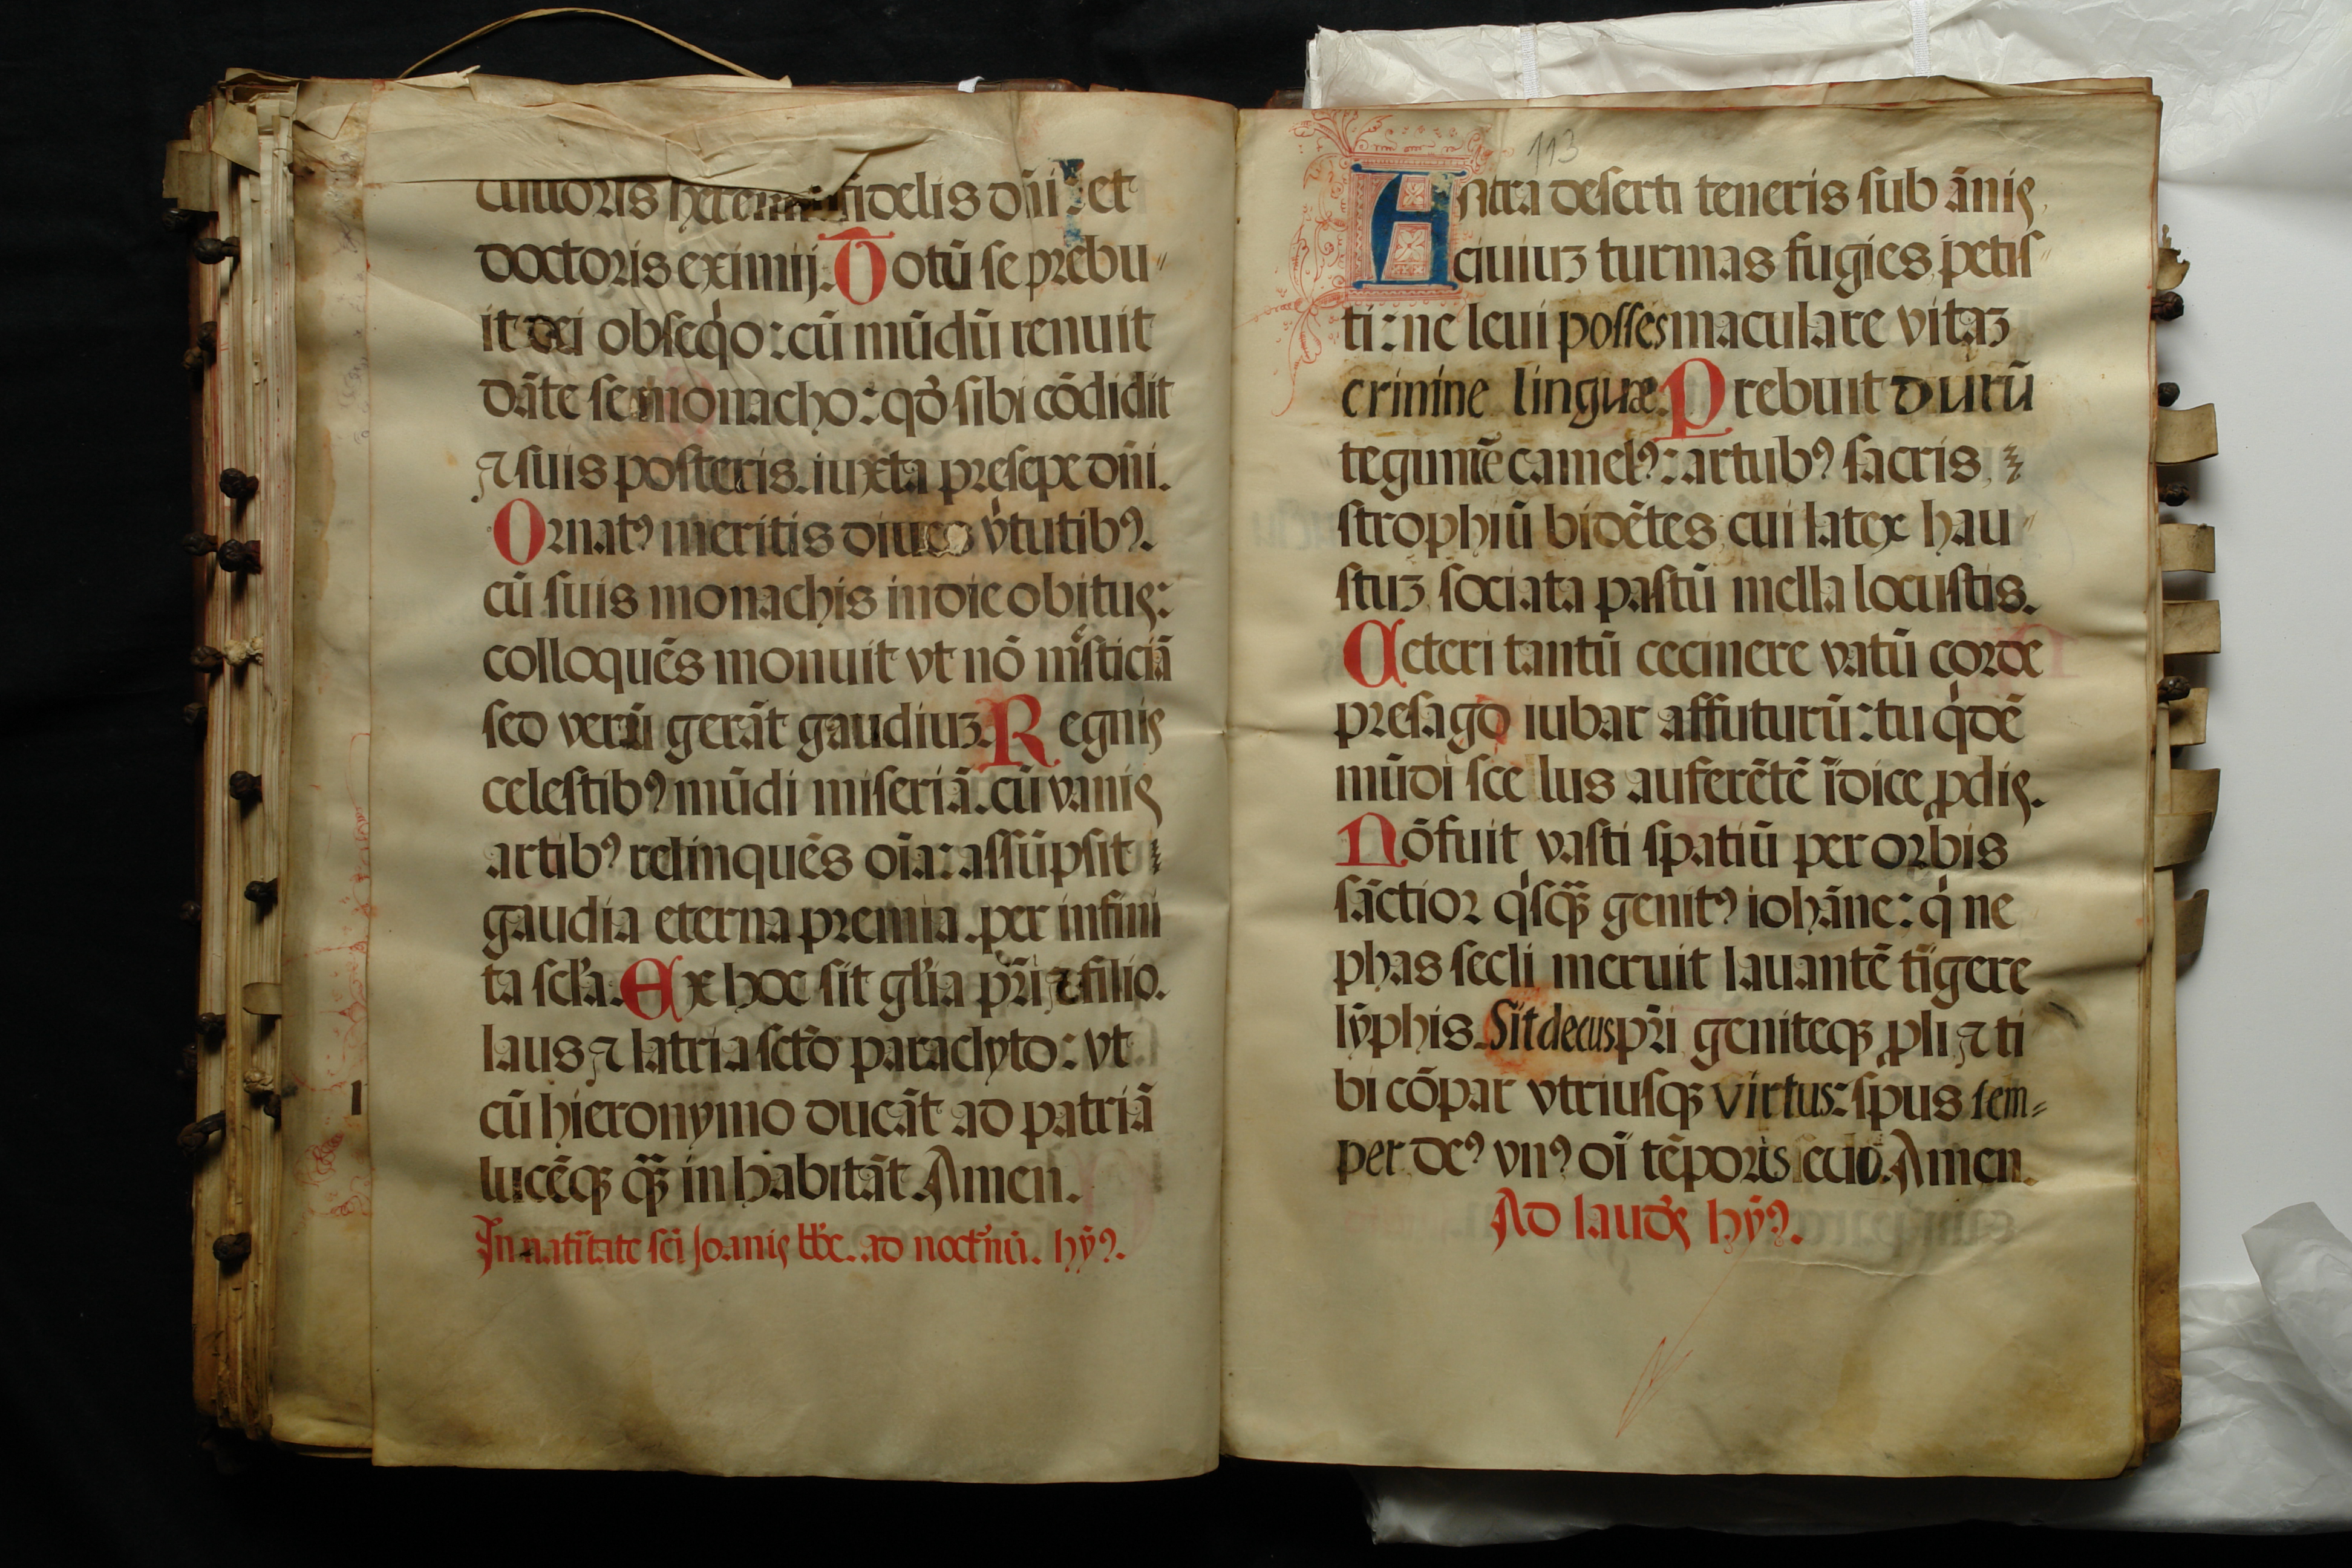 cultoris heremi fidelis dñi et
doctoris eximij. Totū se prebu
it dei obseqo: cū mūdū renuit
dāte se monacho: qđ sibi cōdidit
⁊ suis posteris. iuxta presepe dñi.
Ornatꝰ meritis v̓tutibꝰ.
cū suis monachis in die obitus:
colloquēs monuit vt nō m̓sticiā
sed verū gerāt gaudiuꝫ. Regnis
celestibꝰ mūdi miseriā. cū vanis
artibꝰ relinquēs oīa: assūpsit
gaudia eterna premia. per infini
ta scła. Ex hoc sit głia pr̄i ⁊ filio.
laus ⁊ latria sctō paraclyto: vt
cū hieronymo ducāt ad patriā
lucēqꝫ qꝫ̄ inhabitāt. Amen.
In natītate scī Joanis bbt̄e. ad noct̓nū. hȳꝰ.
113
Antra deserti teneris sub ānis
ciuiuꝫ turmas fugies, petis
ti: ne leui posses maculare vitaꝫ
crimine linguæ. Prebuit durū
tegumē camelꝰ: artubꝰ sacris
strophiū bidētes cui latex hau
stuꝫ sociata pastū mella locustis.
Ceteri tantū cecinere vatū corde
presago iubar affuturū: tu qͥdē
mūdi scelus auferētē īdice ꝓdis.
Nō fuit vasti spatiū per orbis
sāctior qͥsqꝫ̄ genitꝰ iohāne: qͥ ne
phas secli meruit lauantē tīgere
lȳphis. Sit decus pr̄i geniteqꝫ ꝓli ⁊ ti
bi cōpar vtriusqꝫ virtus: sp̄us sem=
per deꝰ vnꝰ oī tēporis euo. Amen.
Ad laudes hȳꝰ.